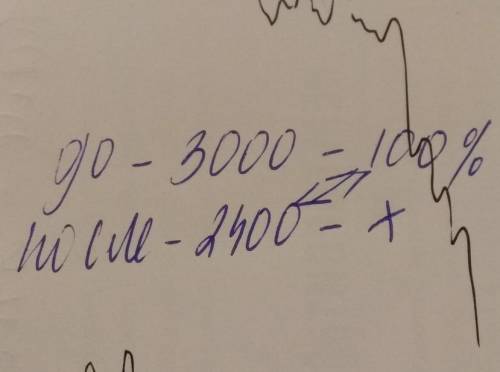 до - 3000 - 100%
после - 2400 - х